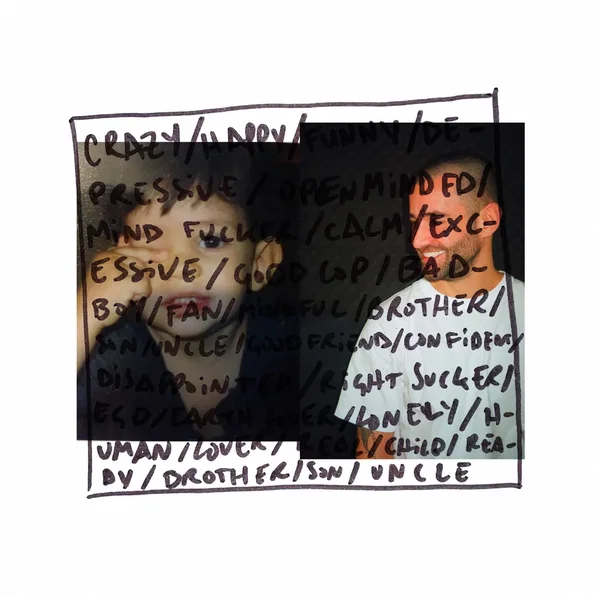 CRAZY/HAPPY/FUNNY/DE-
PRESSIVE/OPENMINDED/
MIND FUCKER/CALM/EXC-
ESSIVE/GOOD COP/BAD-
BOY/FAN/MINDFUL/BROTHER/
SON/UNCLE/GOOD FRIEND/CONFIDENT/
DISAPPOINTED/RIGHT SUCKER/
EGO/EARTH LOVER/LONELY/H-
UMAN/LOVER/REAL/CHILD/REA-
DY/BROTHER/SON/UNCLE